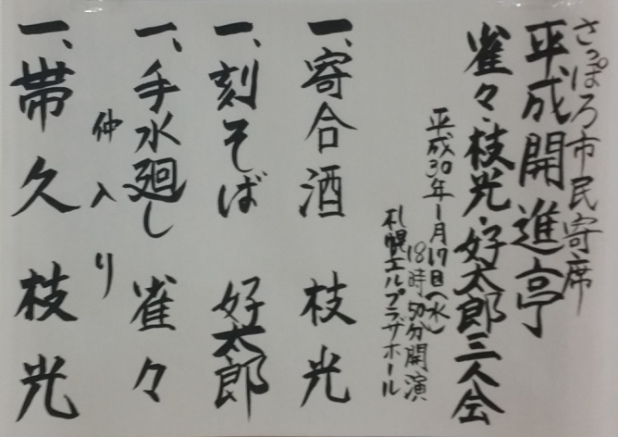 さっぽろ市民寄席
平成開進亭
雀々・枝光・好太郎三人会
平成30年1月17日(水)
18時50分開演
札幌エルプラザホール
一、寄合酒 枝光
一、刻そば 好太郎
一、手水廻し 雀々
仲入り
一、帯久 枝光